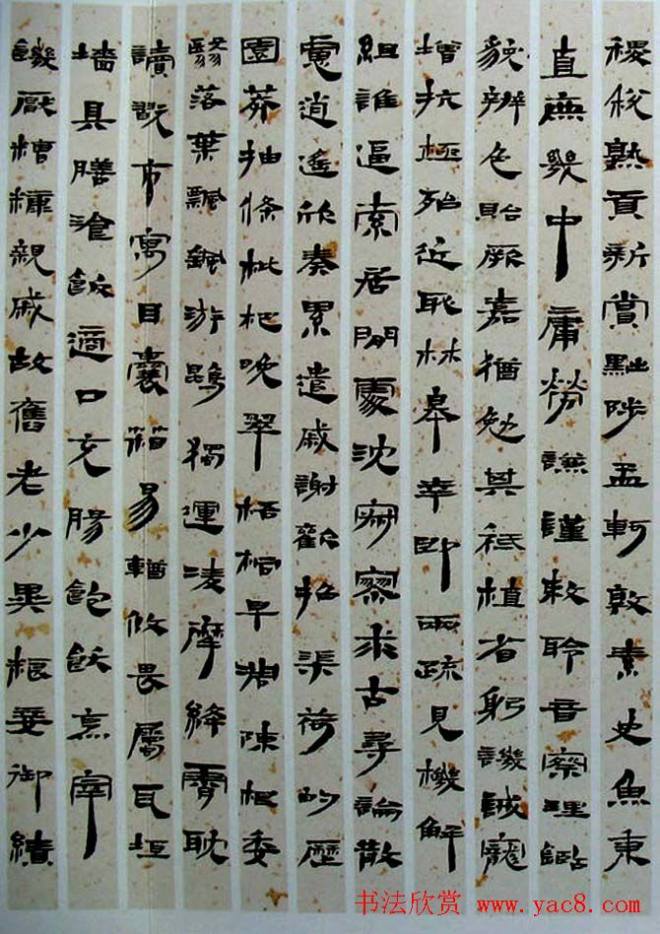 稷稅熟貢新賞黜陟孟軻敦素史魚秉
直庶幾中庸勞謙謹敕聆音察理鑒
貌辨色貽厥嘉猷勉其祗植省躬譏誡寵
增抗極殆近恥林皋幸即兩疏見機解
組誰逼索居閒處沈寂寥求古尋論散
慮逍遙欣奏累遣戚謝歡招渠荷的歷
園莽抽條枇杷晚翠梧桐早凋陳根委
翳落葉飄颻游鵾獨運凌摩絳霄耽
讀翫市寓目囊箱易輶攸畏屬耳垣
墻具膳飡飯適口充腸飽飫烹宰
饑厭糟糠親戚故舊老少異糧妾御績
书法欣赏 www.yac8.com